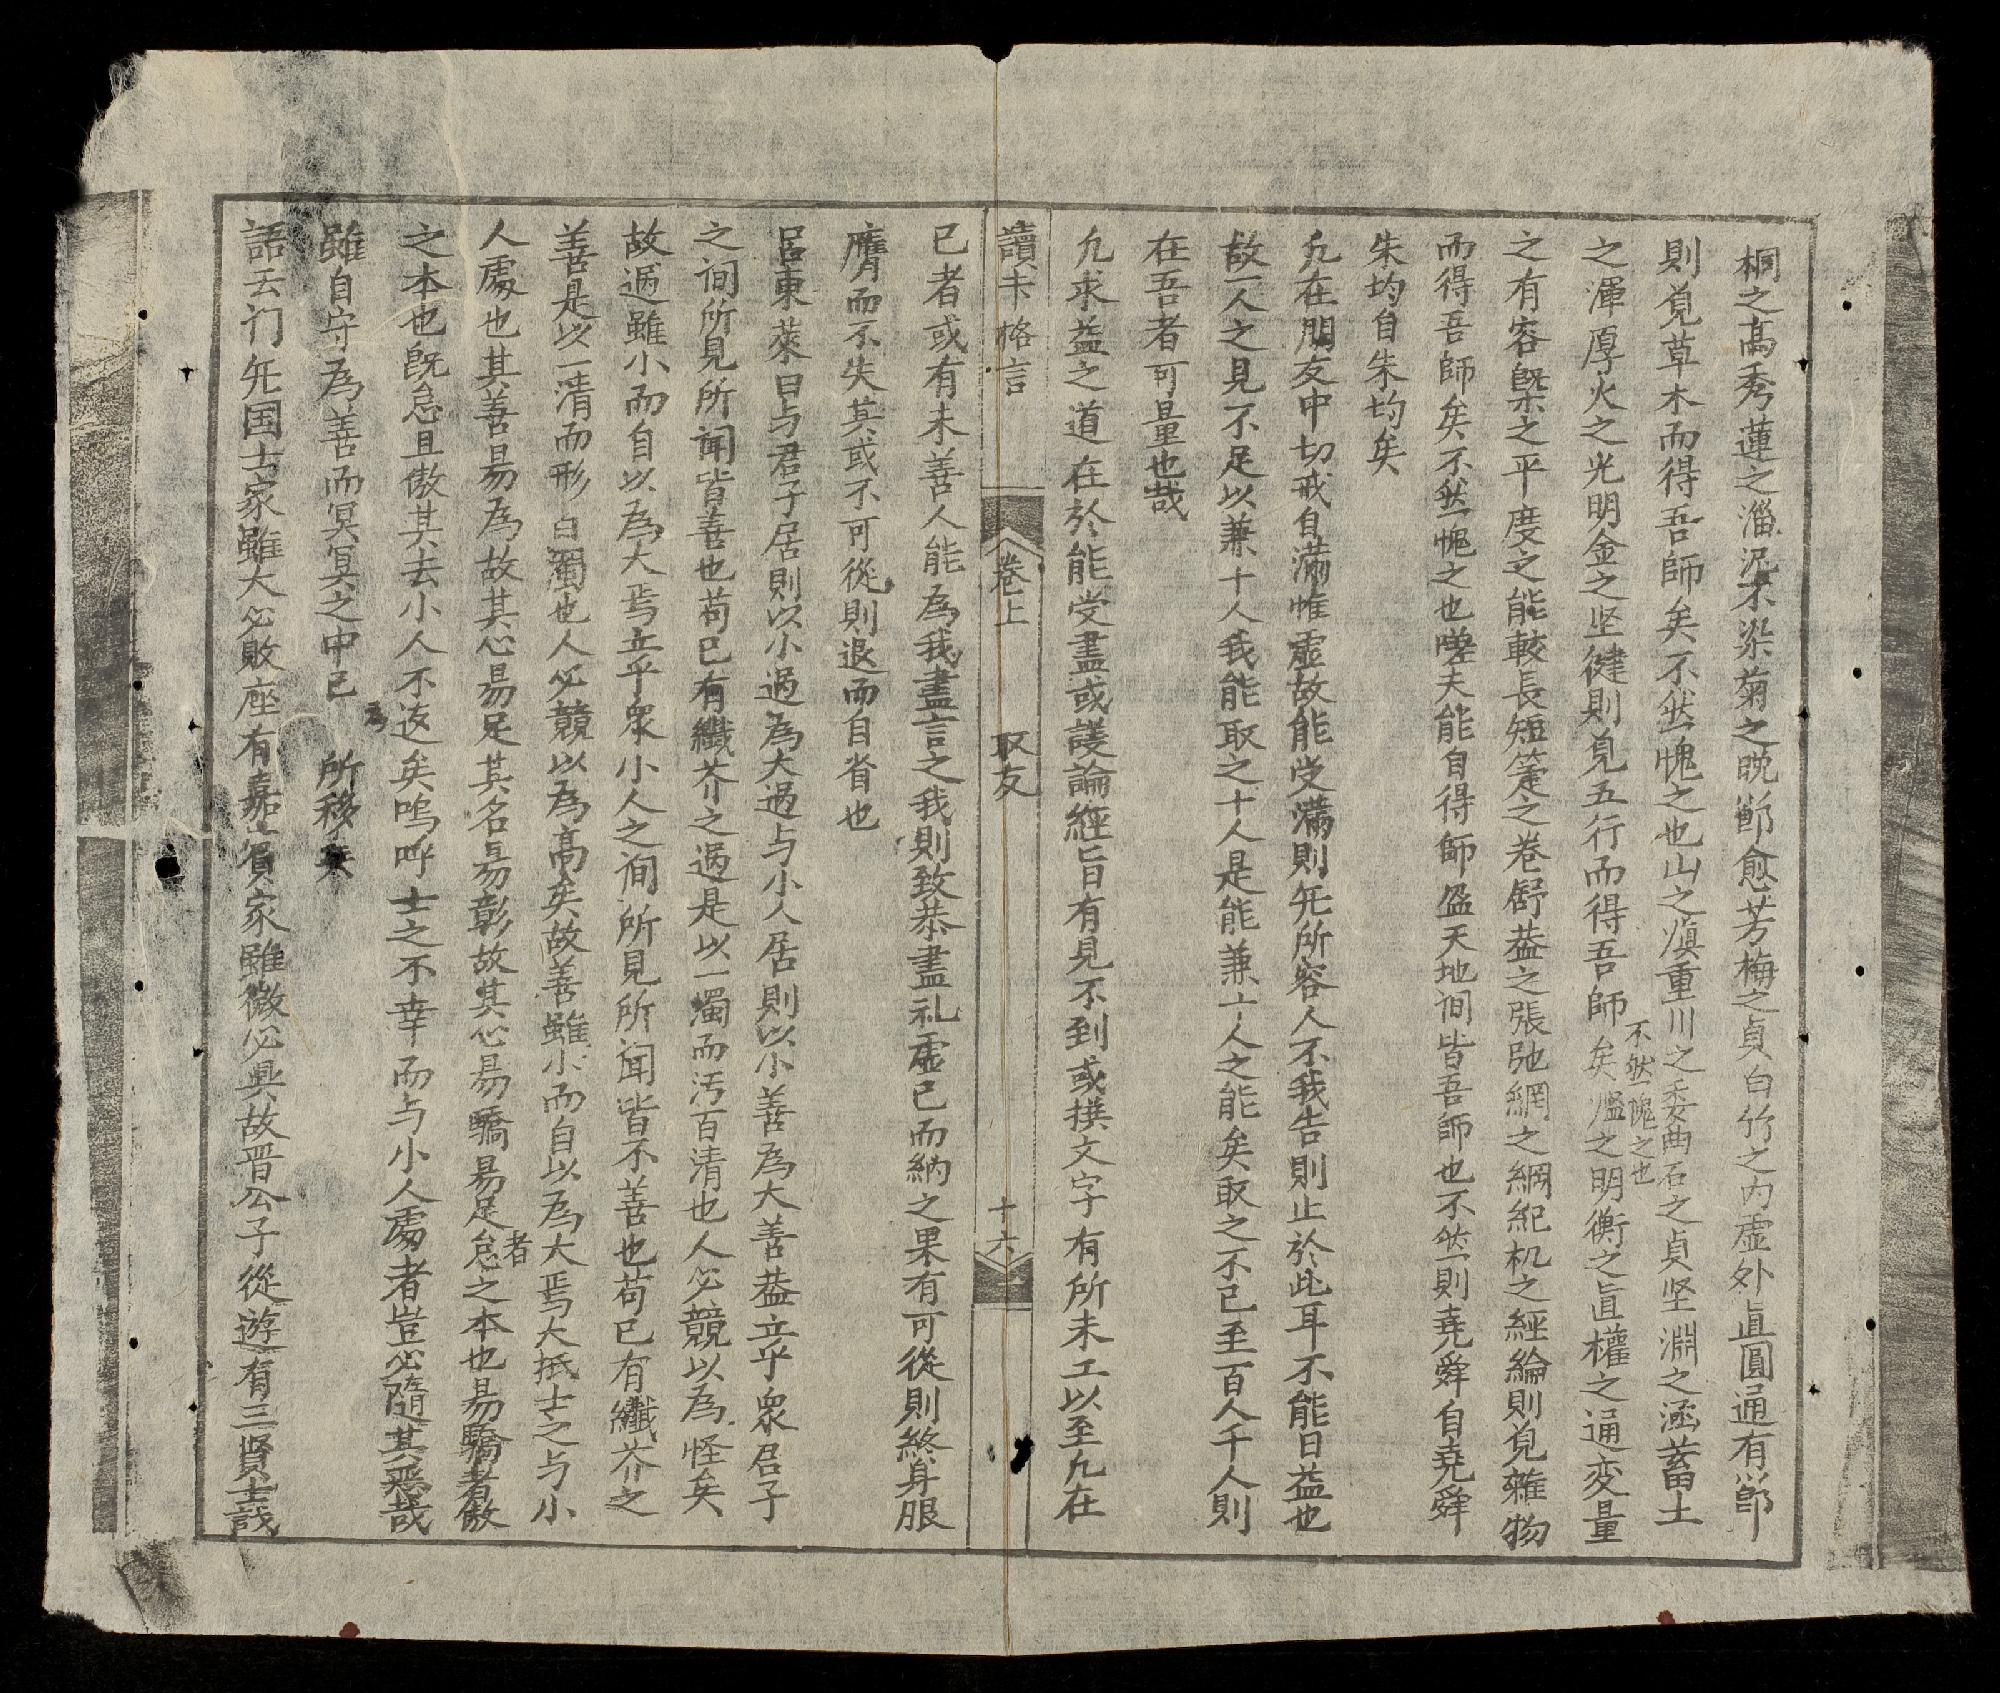 桐之高秀蓮之淄泥不染菊之晩節愈芳梅之貞白竹之內虛外直圓通有節
則見草木而得吾師矣不然愧之也山之鎮重川之委曲石之貞坚淵之涵蓄土
之渾厚火之光明金之坚健則見五行而得吾師矣鑑之明衡之直權之通变量
不然愧之也
之有容槩之平度之能較長短簔之卷舒蓋之張弛網之綱紀机之經綸則見雜物
而得吾師矣不然愧之也嗟夫能自得師盈天地间皆吾師也不然則堯舜自堯舜
朱均自朱均矣
凢在朋友中切戒自滿惟虛故能受滿則旡所容人不我告則止於此耳不能日益也
故一人之見不足以兼十人我能取之十人是能兼十人之能矣取之不已至百人千人則
在吾者可量也哉
凢求益之道在於能受盡或議論經旨有見不到或撰文字有所未工以至凢在
讀书格言 卷上 取友 十六
已者或有未善人能為我盡言之我則致恭盡礼虛已而納之果有可從則終身服
膺而不失其或不可從則退而自省也
吕東萊曰与君子居則以小過為大過与小人居則以小善為大善蓋立乎衆君子
之间所見所闻皆善也苟已有纖芥之過是以一濁而汚百清也人必競以為怪矣
故過雖小而自以為大焉立乎衆小人之间所見所闻皆不善也苟已有纖芥之
善是以一清而形百濁也人必競以為高矣故善雖小而自以為大焉大抵士之与小
人處也其善易為故其心易足其名易彰故其心易驕易足者怠之本也易驕者傲
之本也旣怠且傲其去小人不返矣嗚呼士之不幸而与小人處者豈必隨其惡哉
雖自守為善而冥冥之中已為所移矣
語云门旡国士家雖大必敗座有嘉賔家雖微必興故晋公子從遊有三賢士識